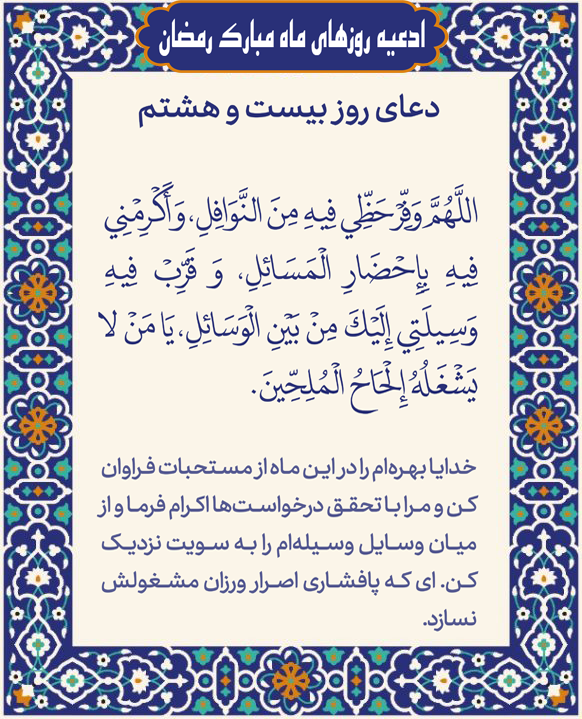 ادعیه روزهای ماه مبارک رمضان
دعای روز بیست و هشتم
اللَّهُمَّ وَفِّرْ حَظِّي فِيهِ مِنَ النَّوَافِلِ، وَأَكْرِمْنِي
فِيهِ بِإِحْضَارِ الْمَسَائِلِ، وَ قَرِّبْ فِيهِ
وَسِيلَتِي إِلَيْكَ مِنْ بَيْنِ الْوَسَائِلِ، يَا مَنْ لا
يَشْغَلُهُ إِلْحَاحُ الْمُلِحِّينَ.
خدایا بهره‌ام را در این ماه از مستحبات فراوان
کن و مرا با تحقق درخواست‌ها اکرام فرما و از
میان وسایل وسیله‌ام را به سویت نزدیک
کن. ای که پافشاری اصرار ورزان مشغولش
نسازد.